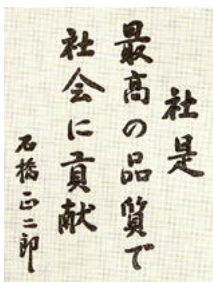 社是
最高の品質で
社会に貢献
石橋正二郎